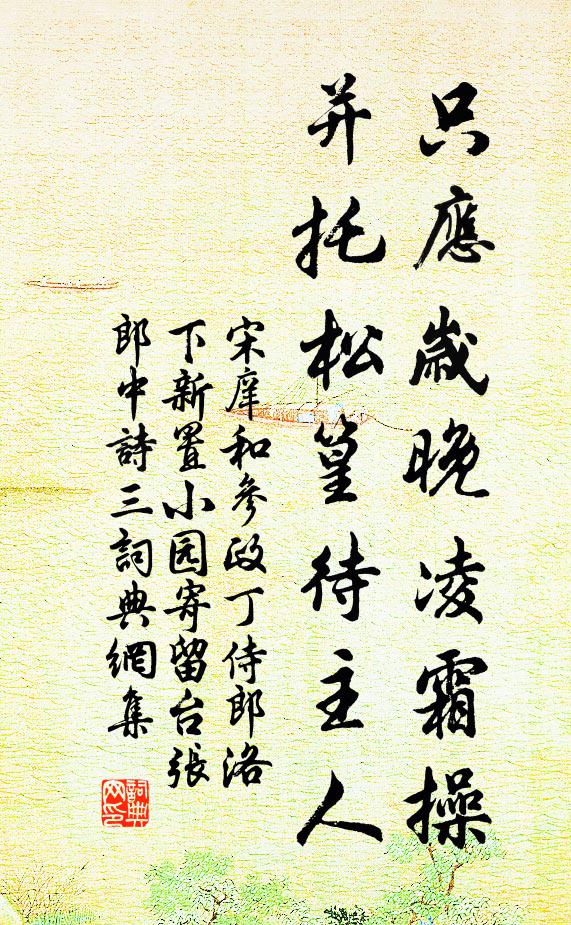 只應歲晚凌霜操
并托松篁待主人
宋庠和參政丁侍郎洛
下新置小园寄留台張
郎中詩三詞典網集
詞典网印